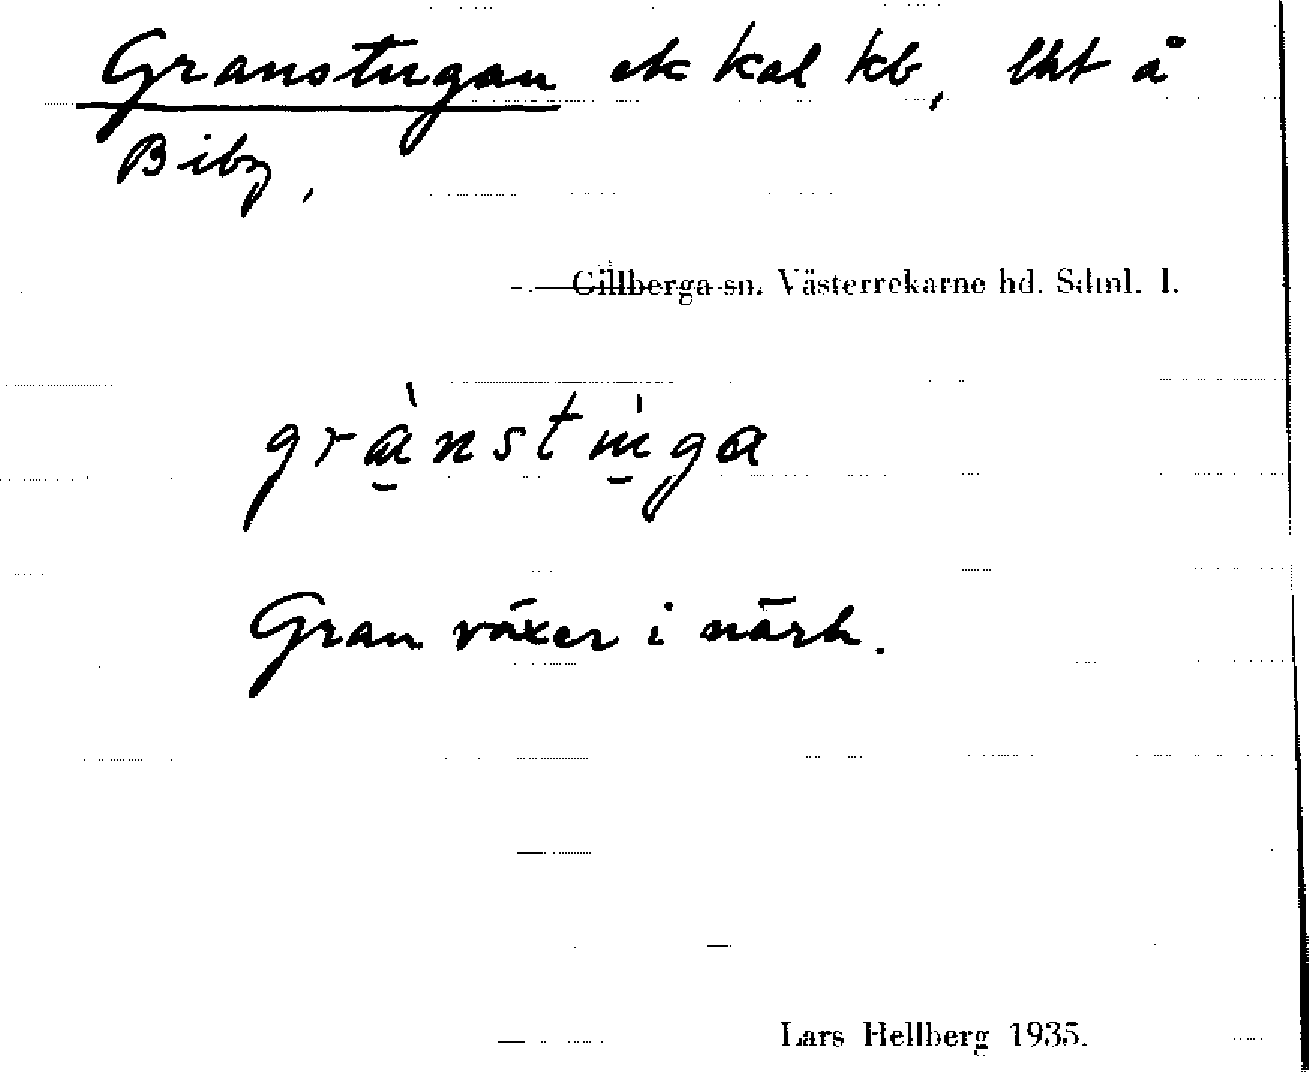 Granstugan ek kal kb, lht å
Biby,
Gillberga sn. Västerrekarne hd. Sdml. l.
grànstùga
Gran växer i närh.
Lars Hellberg 1935.